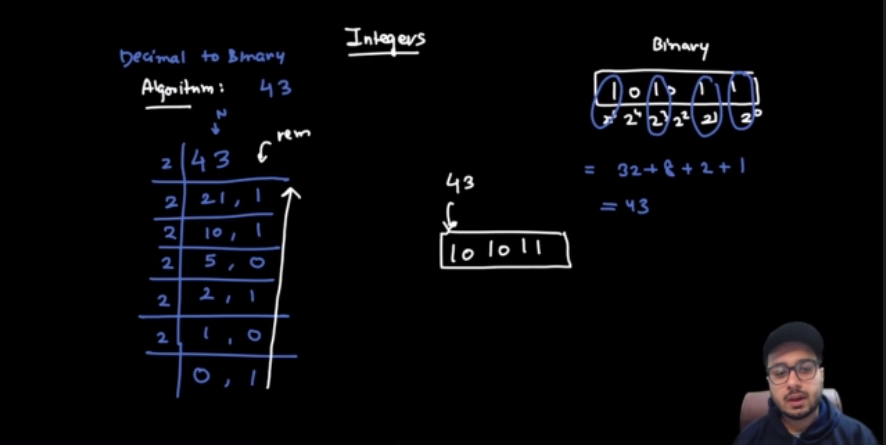 Integers
Decimal to Binary
Algoritum: 43
N
rem
2 | 43
2 | 21, 1
2 | 10, 1
2 | 5, 0
2 | 2, 1
2 | 1, 0
0, 1
43
101011
Binary
1 0 1 0 1 1
2⁵ 2⁴ 2³ 2² 2¹ 2⁰
= 32+8+2+1
= 43